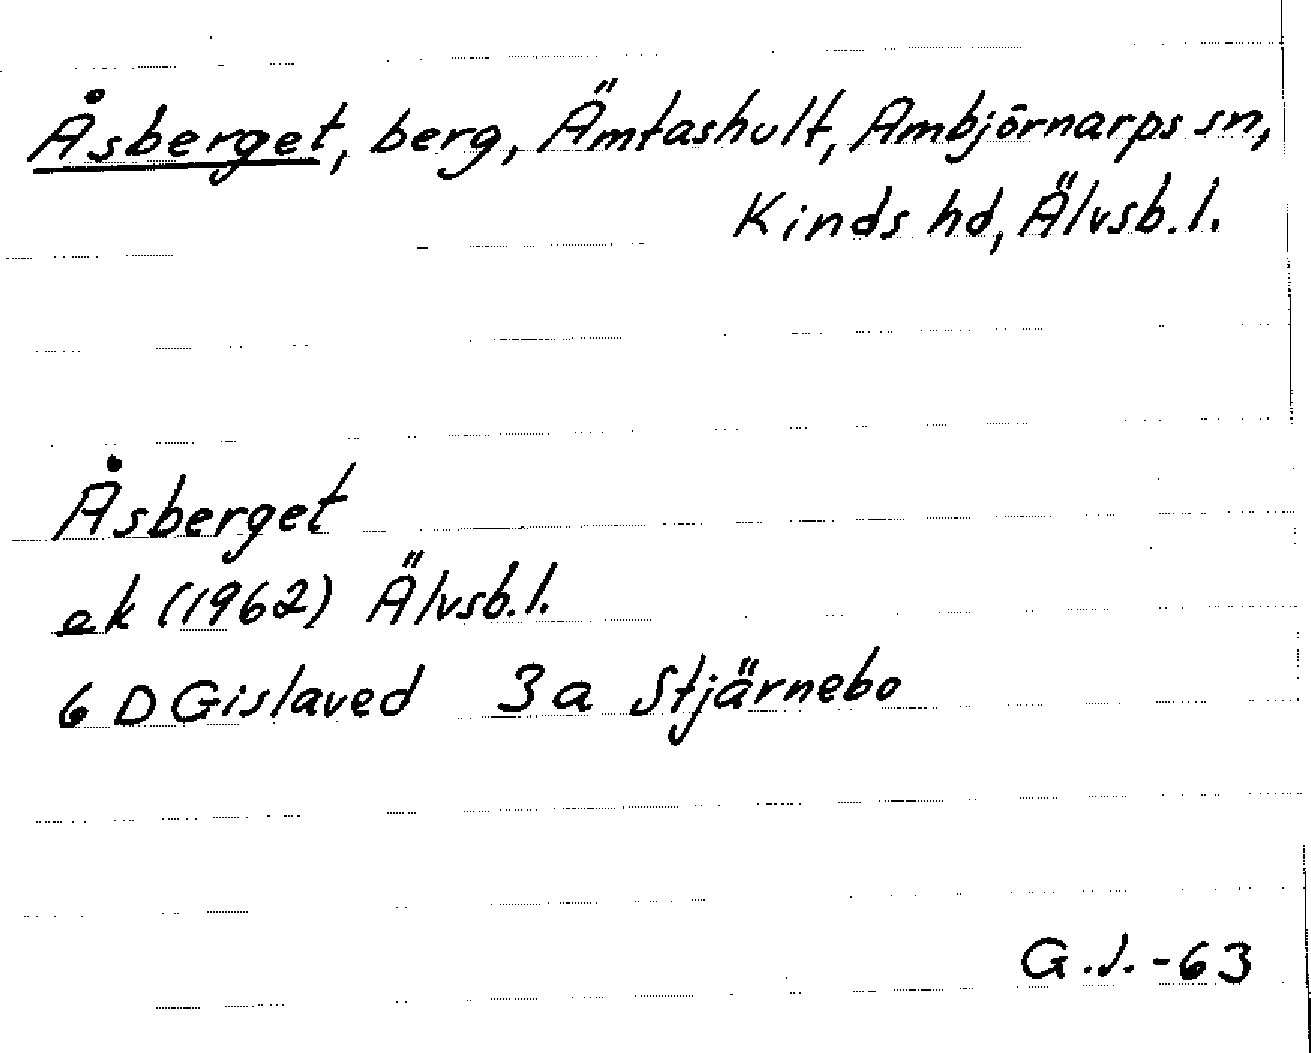 Åsberget, berg, Ämtashult, Ambjörnarps sn,
Kinds hd, Älvsb. l.
Åsberget
ek (1962) Älvsb. l.
6 D Gislaved 3 a Stjärnebo
G.J.-63